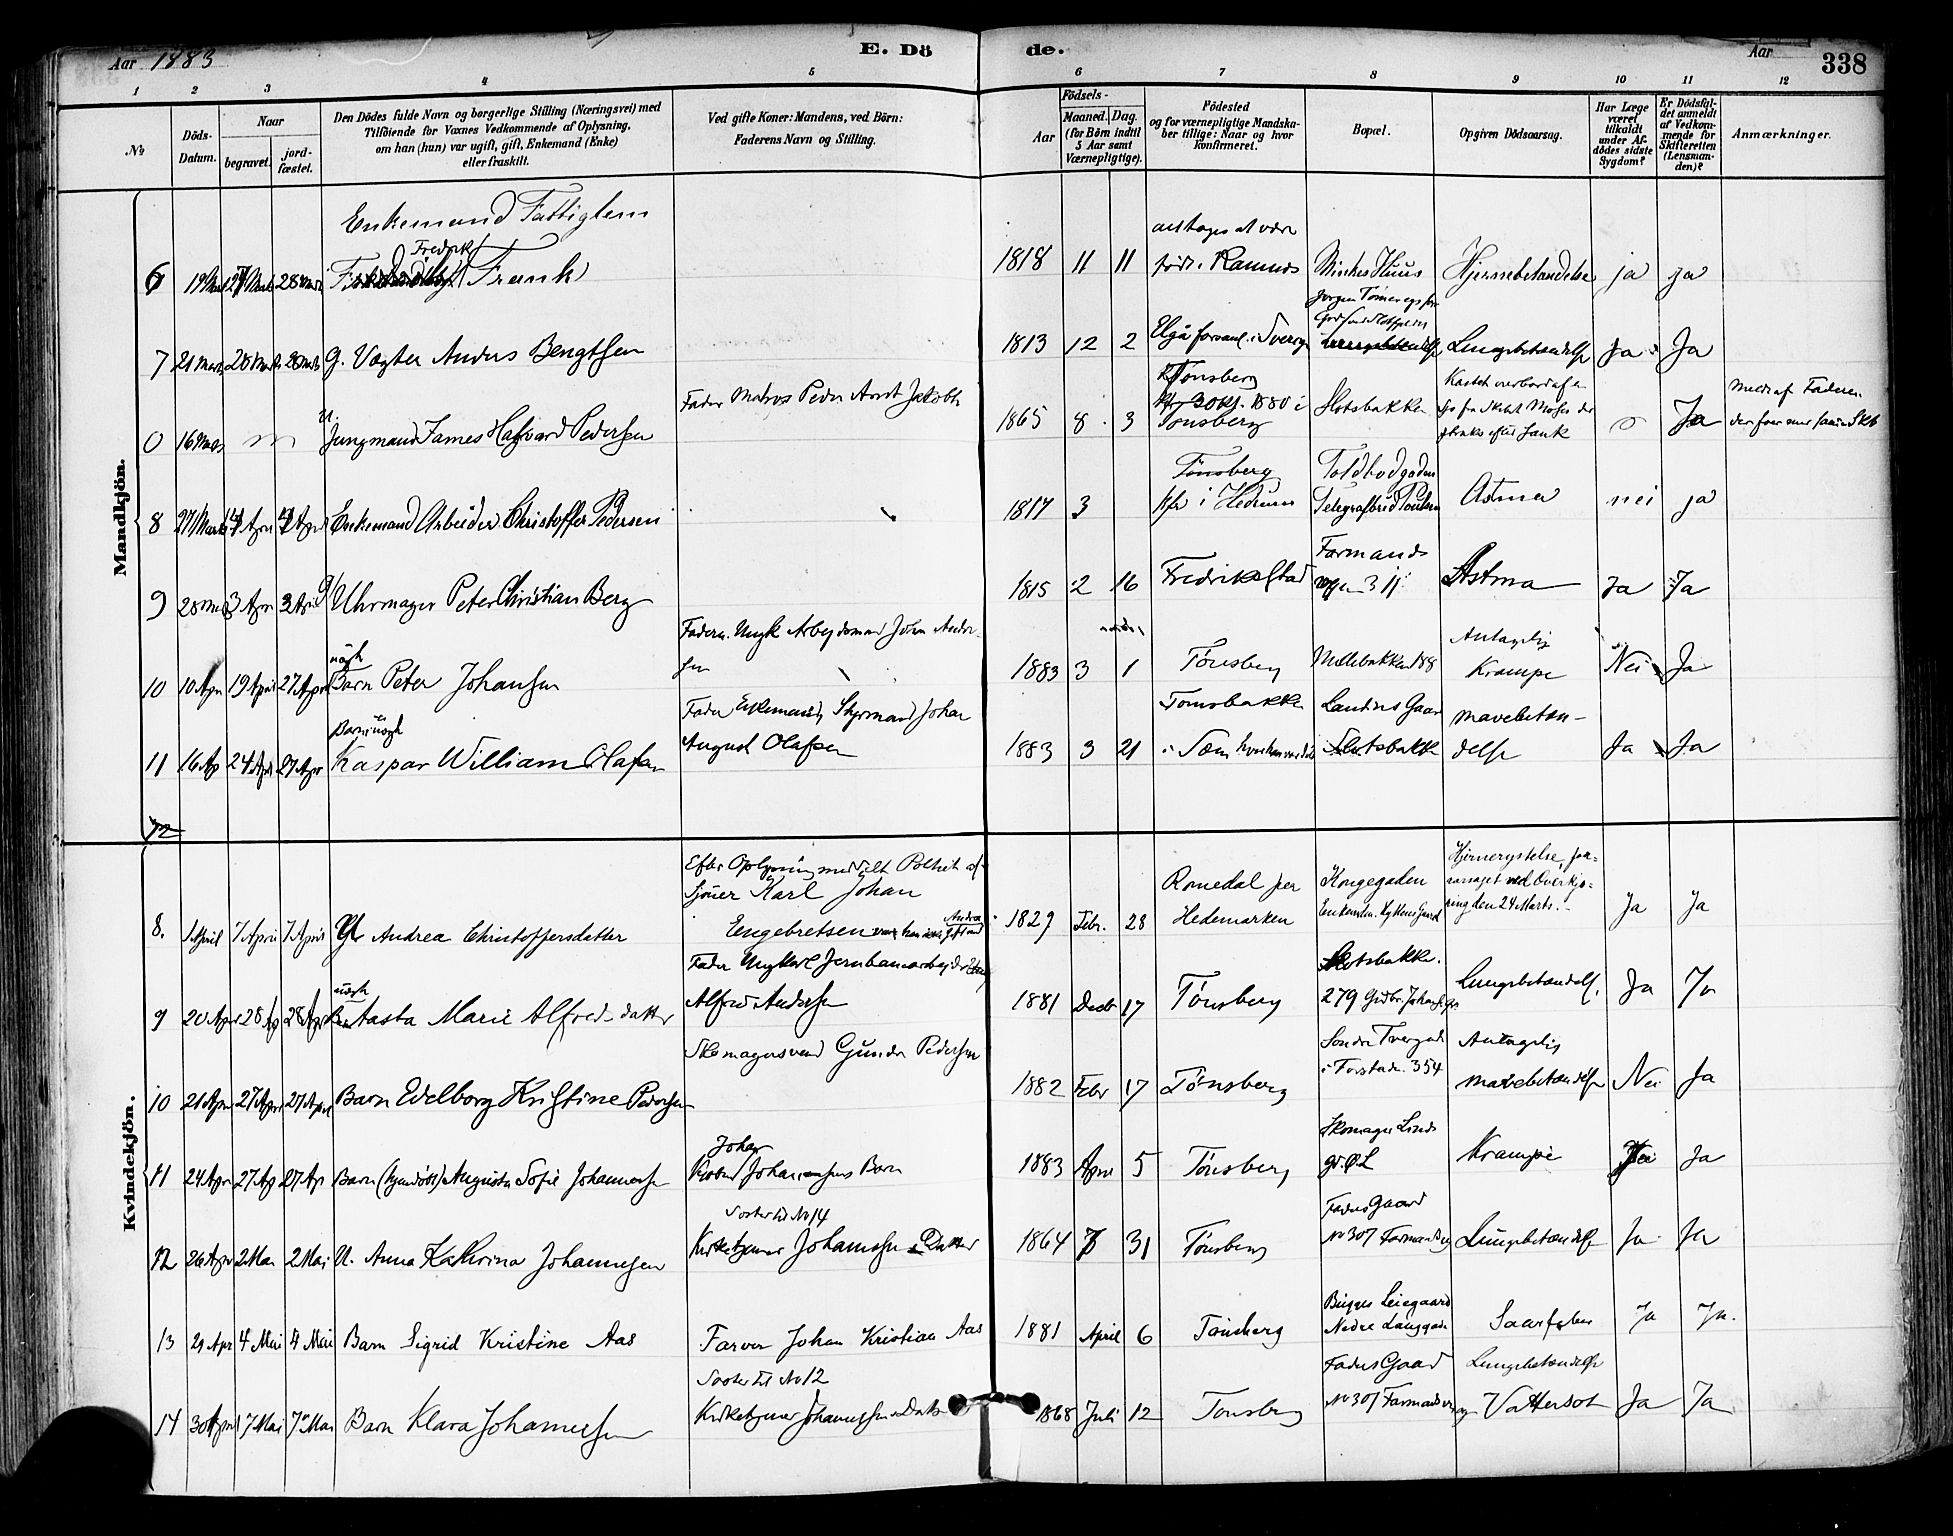 Aar 1883
E. Dö de.
Aar
338
1 2 3 4 5 6 7 8 9 10 11 12
No
Döds-Datum.
Naar
begravet.
jord-fæstet.
Den Dödes fulde Navn og borgerlige Stilling (Næringsvei) med
Tilföiende for Voxnes Vedkommende af Oplysning,
om han (hun) var ugift, gift, Enkemand (Enke)
eller fraskilt.
Ved gifte Koner: Mandens, ved Börn:
Faderens Navn og Stilling.
Födsels-
Aar
Maaned. Dag.
(for Börn indtil
5 Aar samt
Værnepligtige).
Födested
og for værnepligtige Mandska-
ber tillige: Naar og hvor
konfirmeret.
Bopæl.
Opgiven Dödsaarsag.
Har Læge
været
tilkaldt
under Af-
dödes sidste
Sygdom?
Er Dödsfal-
det anmeldt
af Vedkom-
mende for
Skifteretten
(Lensman-
den)?
Anmærkninger.
Mandkjön.
Enkemand Fattiglem
Fredrik
6 19 Marts 27 Marts 28 Marts Frank 1818 11 11 antages at være født i Ramnes Hjernebetændelse ja ja
7 21 Marts 28 Marts 28 Marts g. Vægter Anders Bengtsen 1813 12 2 Lungebetændelse Ja Ja
0 16 Marts Jungmand James Hafvard Pedersen
Fader Matros Peder Arnt Jakobs
1865 8 3 Tønsberg 1880 i Tønsberg Slotsbakken Kastet overbord af en fra Skibet Moses Sank Ja
8 27 Marts 4 Apri 4 Apri Enkemand Arbeider Christoffer Pedersen 1817 3 Tønsberg i Hedrum Toldbodgaden Astma nei ja
9 28 Marts 3 Apri 3 April g Uhrmager Peter Christian Berg 1815 2 16 Fredrikstad Farmandsvejen 311 Astma Ja Ja
10 10 Apri 19 April 27 April uægte Barn Peter Johansen
Faderen Ungk Arbejdsmand John Andersen
1883 3 1 Tønsberg Møllebakken 188 Antagelig Krampe Nei Ja
11 16 Ap 24 Apr 27 Apr Barn uægte Kaspar William Olafsen
Fader Enkemand, Styrmand Johan
August Olafsen
1883 3 21 Tomsbakke i Sæm Landins Gaard Slotsbakke mavebetændelse Ja Ja
12
Kvindekjön.
8. 1 April 7 April 7 April Andrea Christoffersdatter
Efter Oplysning meddelt Politiet af
Sjöuer Karl Johan
Engebretsen
1829 Febr. 28 Romedal paa Hedemarken Kongegaden Hjernerystelse, for-
aarsaget ved Overkjö-
ring den 24 Marts. Ja Ja
9 20 Apr 28 Ap 28 Apr uægte Barn Aasta Marie Alfredsdatter
Fader Ungkarl Jernbanearbejder
Alfred Andersen
1881 Decbr 17 Tønsberg Slotsbakke. 279 Lungebetændelse, Ja Ja
10 21 Apr 27 Apr 27 April Barn Edelborg Kristine Pedersen
Skomagersvend Gunder Pedersen
1882 Febr 17 Tønsberg Søndre Tvergade i Forstaden 354 Antagelig mavebetændelse Nei Ja
11 24 Apr 27 Ap 27 Ap Barn (hjemdöbt) Augusta Sofie Johannesen
Johan
Johannesens Barn
1883 April 5 Tønsberg Skomager Linds Krampe Nei Ja
Søster til No 14
12 26 Apr 2 Mai 2 Mai U. Anna Kathrina Johannesen Kirketjener Johannesens Datter 1864 7 31 Tønsberg Faders Gaard No 307 Farmandsvej Lungebetændelse Ja Ja
13 29 Apr 4 Mai 4 Mai Barn Sigrid Kristine Aas Farver Johan Kristian Aas 1881 April 6 Tønsberg Bugges Leiegaard Nedre Langgade Ja Ja.
Søster til No 12
14 30 April 7 Mai 7 Mai Barn Klara Johannesen Kirketjener Johannesens Datter 1868 Juli 12 Tønsberg Faders Gaard No 307 Farmandsvej Lungebetændelse og Vattersot Ja Ja